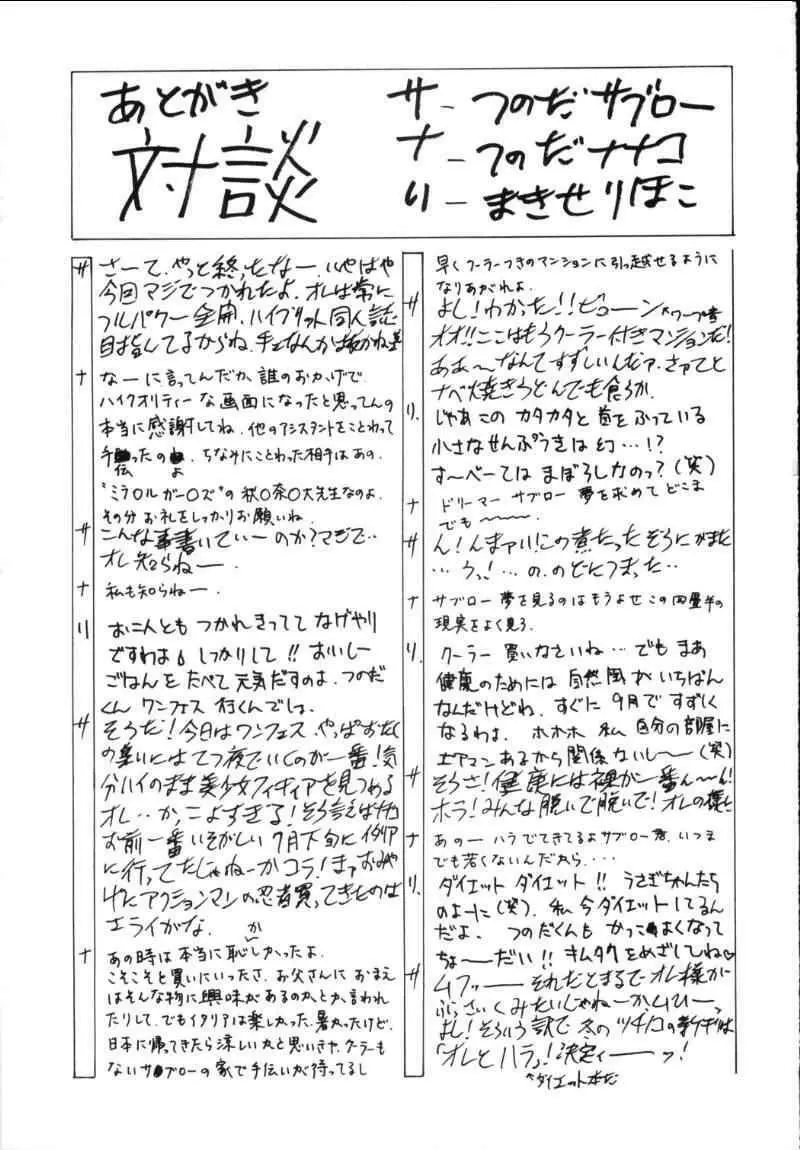 あとがき
対談
サ－つのだサブロー
ナ－つのだナナコ
り－まきせりほこ
サ さーて、やっと終ったなー、いやはや
今回マジでつかれたよ。オレは常に
フルパワー全開、ハイブリット同人誌
目指してるからね、手なんかは抜かねー
ナ なーに言ってんだか、誰のおかげで
ハイクオリティーな画面になったと思ってんの
本当に感謝してね。他のアシスタントをことわって
手伝ったのよ。ちなみにことわった相手はあの、
"ミラ○ルガー○ズ"の秋○奈○大先生なのよ。
その分お礼をしっかりお願いね。
サ こんな事書いていーのか?マジで‥
オレ知らねー。
ナ 私も知らねー。
り お二人とも つかれきってて なげやり
ですわよ。しっかりして!!おいしー
ごはんをたべて元気だすのよ。つのだ
くん ワンフェス 行くんでしょ。
サ そうだ!今日はワンフェス、やっぱおたく
の集いにはてつ夜でいくのが一番!気
分ハイのまま美少女フィギィアを見つめる
オレ‥かっこよすぎる!そう言えば
お前一番いそがしい7月下旬にイタリア
に行ってたじゃねーかコラ!まァおみや
げにアクションマンの忍者買ってきたのは
エライがな。
ナ あの時は本当に恥かしかったよ。
こそこそと買いにいったさ、お父さんにおまえ
はそんな物に興味があるのかとか、言われ
たりして、でもイタリアは楽しかった、暑かったけど、
日本に帰ってきたら涼しいかと思いきや、クーラーも
ないサブローの家で手伝いが待ってるし
早くクーラーつきのマンションに引っ越せるように
なりあがれよ。
サ よし!わかった!!ビューン ←ワープ音
オオ!!ここはもうクーラー付きマンションだ!
ああ～なんてすずしいんだァ、さァてと
ナベ焼きうどんでも食うか
り、 じゃあこの カタカタと首をふっている
小さなせんぷうきは幻…!?
す～べーては まぼろしなのっ?(笑)
ナ ドリーマー サブロー 夢を求めてどこま
でも～～～。
サ ん!んまァい!この煮たったぞうにがまた
…うっ!…の、のどにつまった‥
ナ サブロー 夢を見るのはもうよせ この四畳半の
現実をよく見ろ。
り、 クーラー 買いなさいね…でも まあ
健康のためには 自然風が いちばん
なんだけどね。すぐに 9月で すずしく
なるわよ。ホホホ 私 自分の部屋に
エアコンあるから関係ないし～(笑)
サ そうさ!健康には裸が一番ん～ん!
ホラ!みんな脱いで脱いで!オレの様に
ナ あのー ハラでてきてるよサブロー君、いつま
でも若くないんだから‥‥
り、 ダイエット ダイエット!! うさぎちゃんたち
のよーに(笑)。私 今ダイエットしてるん
だよ。つのだくんも かっこよくなって
ちょーだい!!キムタクをめざしてね♡
サ ムフッーー それだとまるでオレ様が
ぶっさいくみたいじゃねーか、ムヒーっ
よし!そういう訳で 冬のツチノコの新刊は
「オレとハラ」!決定ィーーッ!
^ダイエット本だ